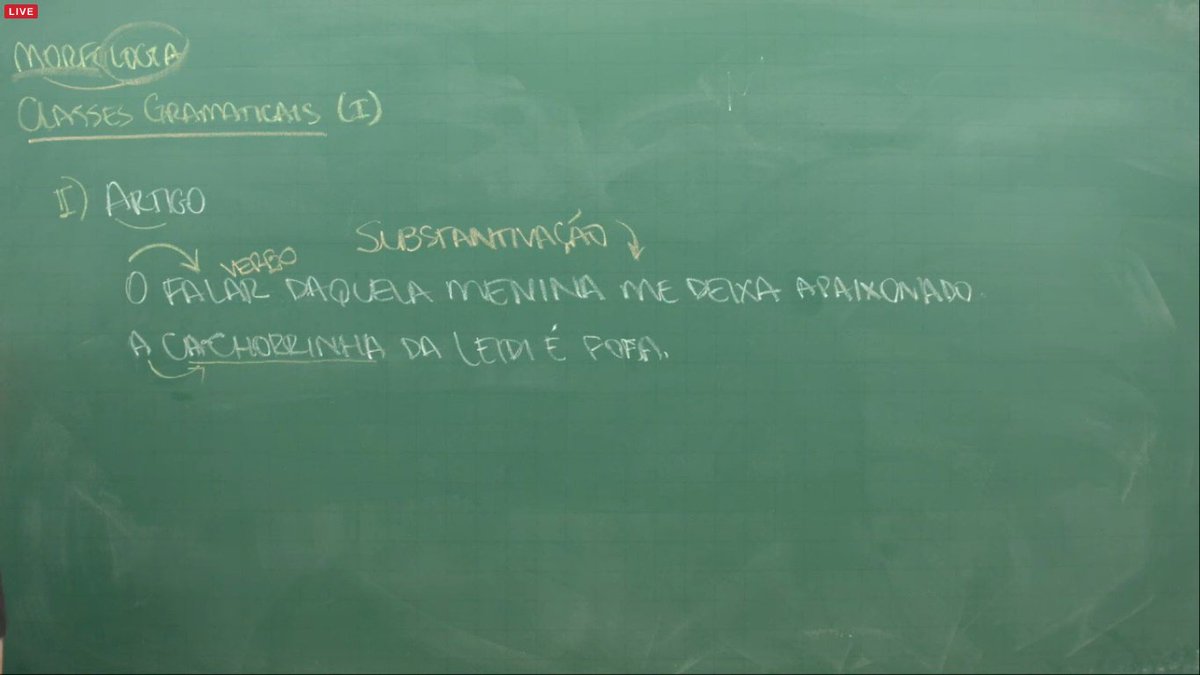 LIVE
MORFOLOGIA
CLASSES GRAMATICAIS (I)
II) ARTIGO
SUBSTANTIVAÇÃO
VERBO
O FALAR DAQUELA MENINA ME DEIXA APAIXONADO.
A CACHORRINHA DA LEIDI É FOFA.